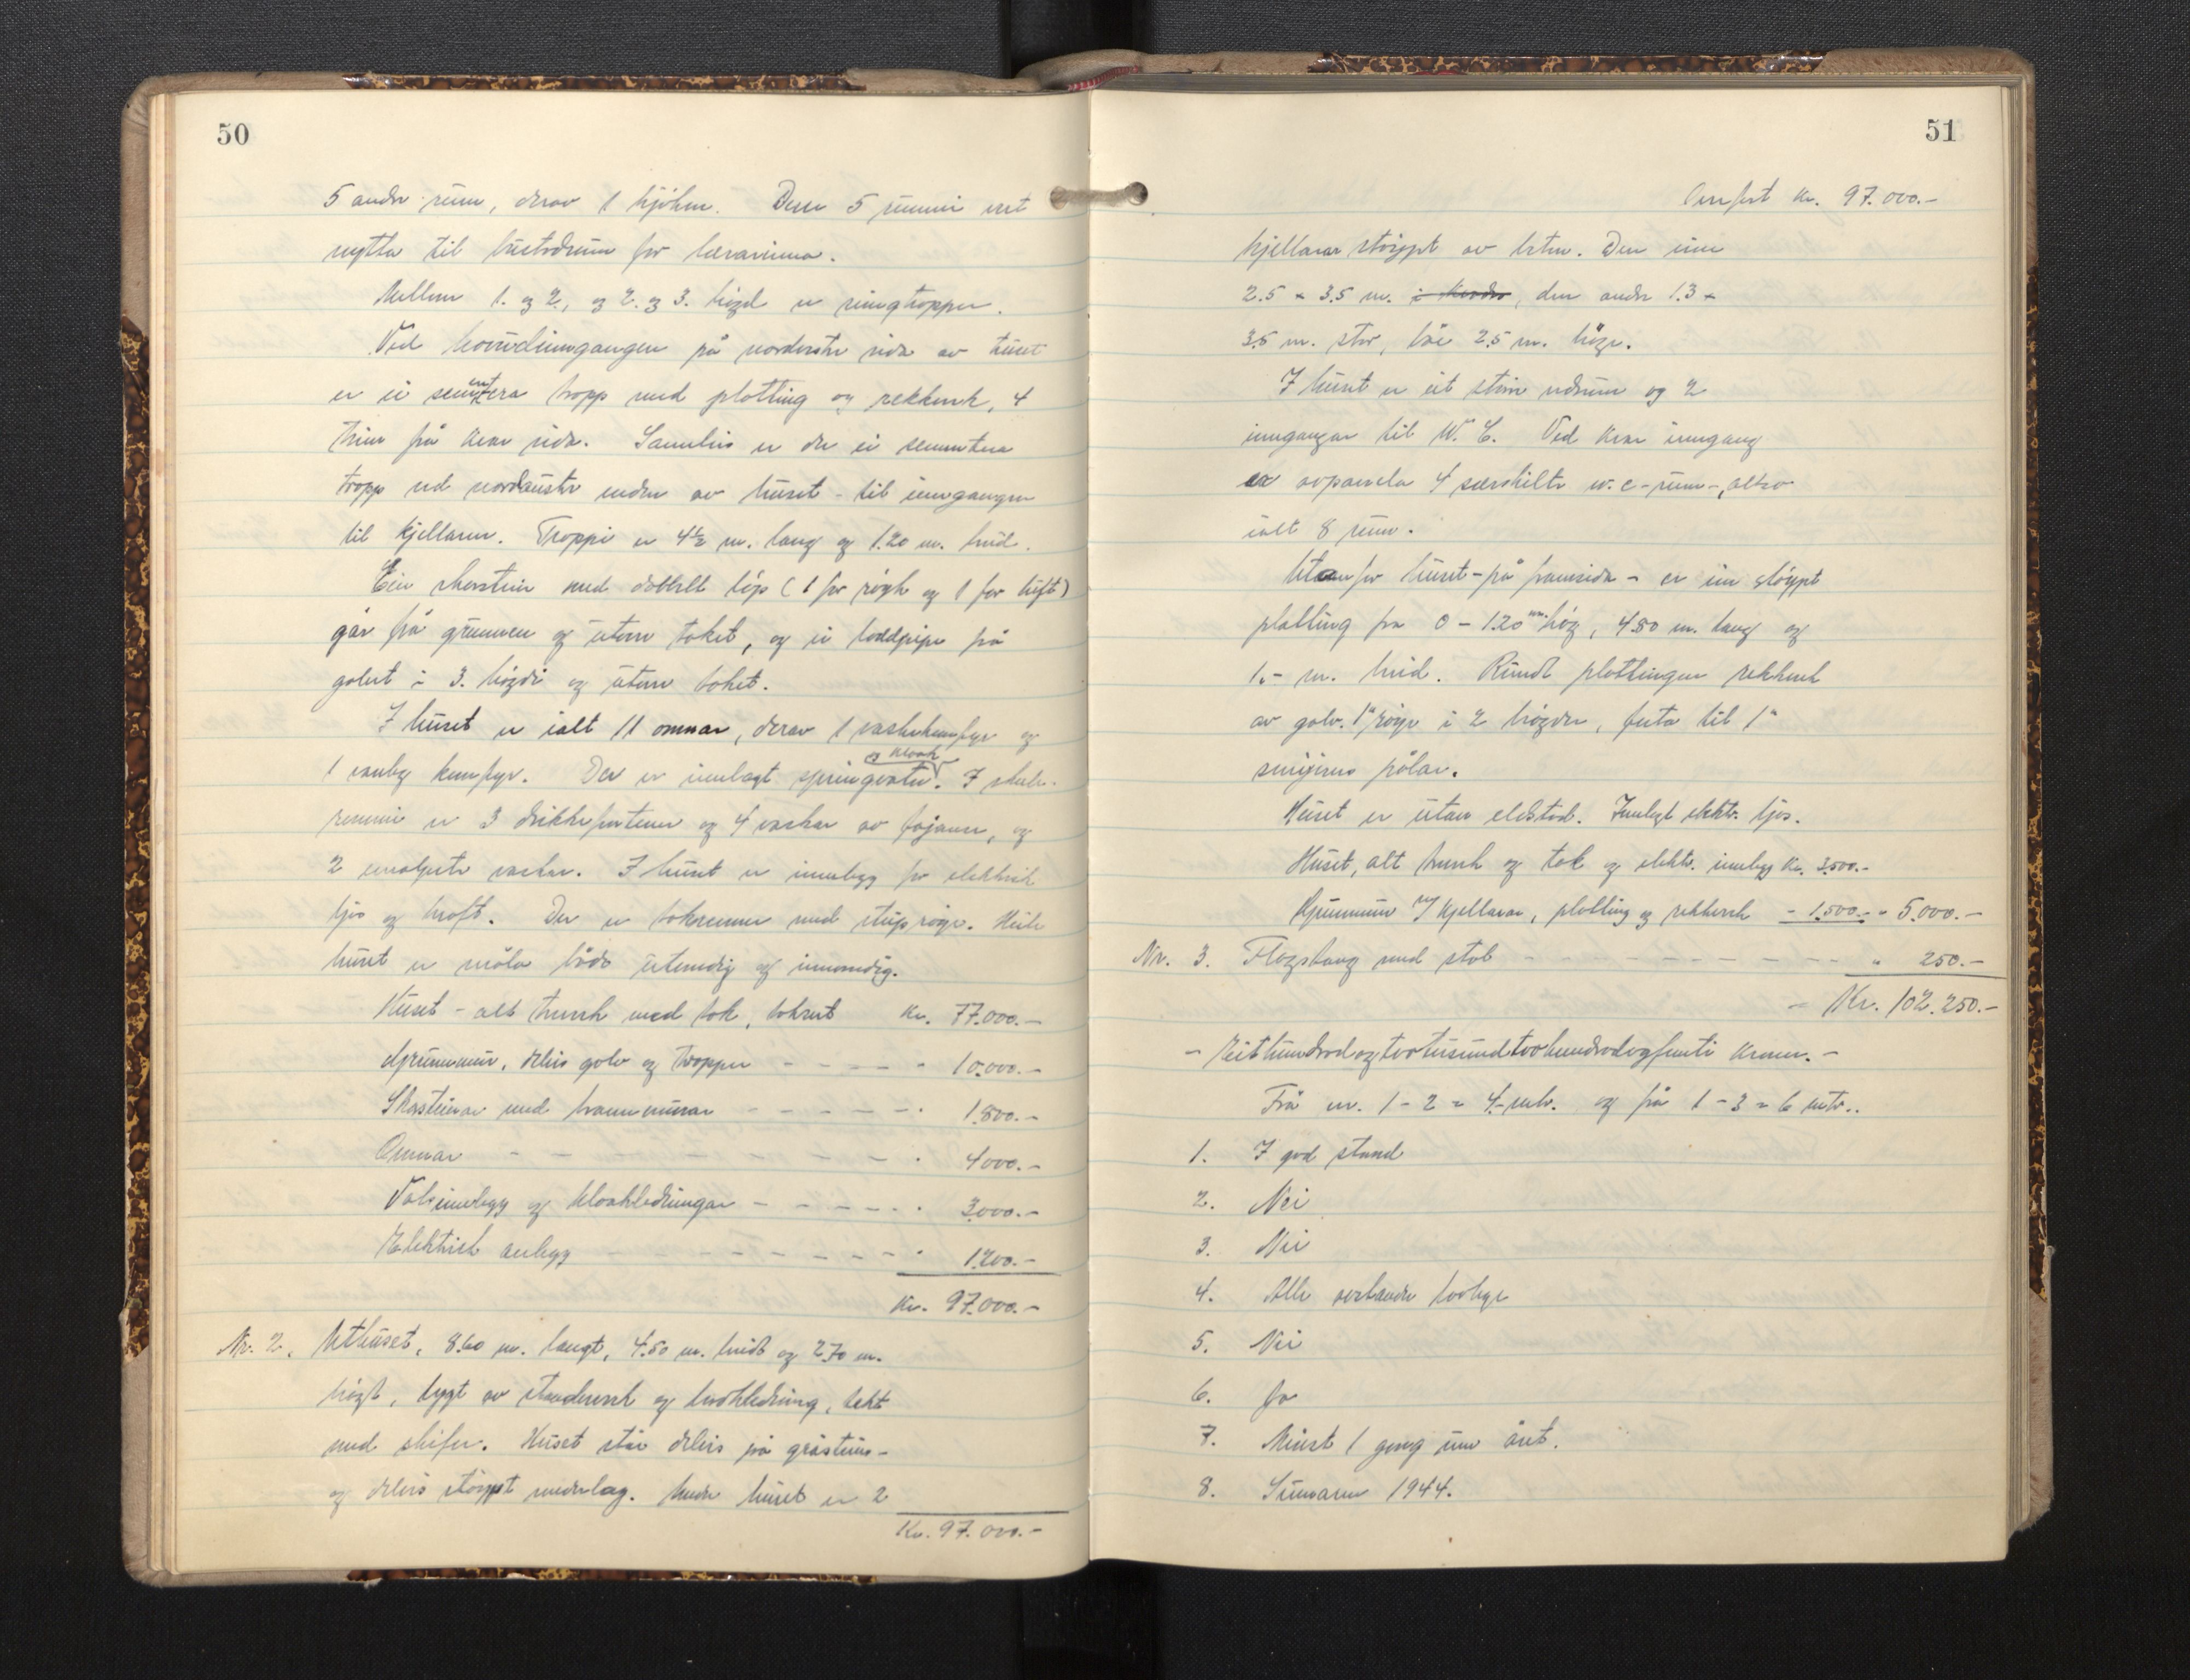 50
5 andre rum, derav 1 kjöken. Desse 5 rummi vert
nytta til bustadrum for lærarinna.
Millom 1. og 2., og 2. og 3. högd er inngtropper.
Ved hovudinngangen på nordvestre sida av huset
er ei sementera tropp med platting og rekkverk, 4
trinn på kvar sida. Sameleis er der ei sementera
tropp ved nordaustre enden av huset - til inngangen
til kjellaren. Troppi er 4½ m. lang og 1.20 m. breid.
Ein skorstein med dobbelt löp (1 for röyk og 1 for luft)
går frå grunnen og utom taket, og ei loddpipe frå
golvet i 3. högdi og utom taket.
I huset er ialt 11 omnar, derav 1 vaskekomfyr og
1 vanleg komfyr. Der er innlagt springvatn og kloak. I skule-
rommi er 3 drikkefontener og 4 vaskar av fajanse, og
2 emaljerte vaskar. I huset er innlegg for elektrisk
ljos og kraft. Der er takrenner med stupröyr. Heile
huset er måla både utvendig og innvendig.
Huset - alt treverk med tak, takrent Kr. 77.000.-
Grunnmur, delvis golv og tropper - - - - - " 10.000.-
Skorsteinar med brannmurar - - - - - " 1.800.-
Omnar - - - - - - - - - " 4000.-
Vatsinnlegg og kloakledningar - - - - - " 3.000.-
Elektrisk anlegg - - - - - - - - - " 1.200.-
Kr. 97.000.-
Nr. 2. Uthuset, 8.60 m. langt, 4.50 m. breidt og 2.70 m.
högt, bygt av standerverk og bordkledning, tekt
med skifer. Huset står delvis på gråsteins-
og delvis stöypt underlag. Under huset er 2
Kr. 97.000.-
51
Overfört Kr. 97.000.-
kjellarar stöypt av betong. Den eine
2.5 x 3.5 m., den andre 1.3 x
3.5 m. stor, båe 2.5 m. höge.
I huset er eit större vedrum og 2
inngangar til W.C. Ved kvar inngang
er avpanela 4 særskilte w.c-rum -, altso
ialt 8 rum.
Utanfor huset - på framsida - er ein stöypt
platting fra 0 - 1.20 m. hög, 4.80 m. lang og
1.- m. breid. Rundt plattingen rekkverk
av galv. 1" röyr i 2 högder, festa til 1"
smijerns pålar.
Huset er utan eldstad. Innlagt elektr. ljos.
Huset, alt treverk og tak og elektr. innlegg Kr. 3.500.-
Grunnmur m/ kjellarar, platting og rekkverk - 1.500.- " 5.000.-
Nr. 3. Flagstang med stol - - - - - - - - - " 250.-
- Kr. 102.250.-
- Eithundradogtvotusundtvohundradogfemti kroner. -
Frå nr. 1 - 2 = 4.- mtr. og frå 1 - 3 = 6 mtr..
1. I god stand
2. Nei
3. Nei
4. Alle verkande lovlege
5. Nei
6. Ja
7. Minst 1 gong um året.
8. Sumaren 1944.